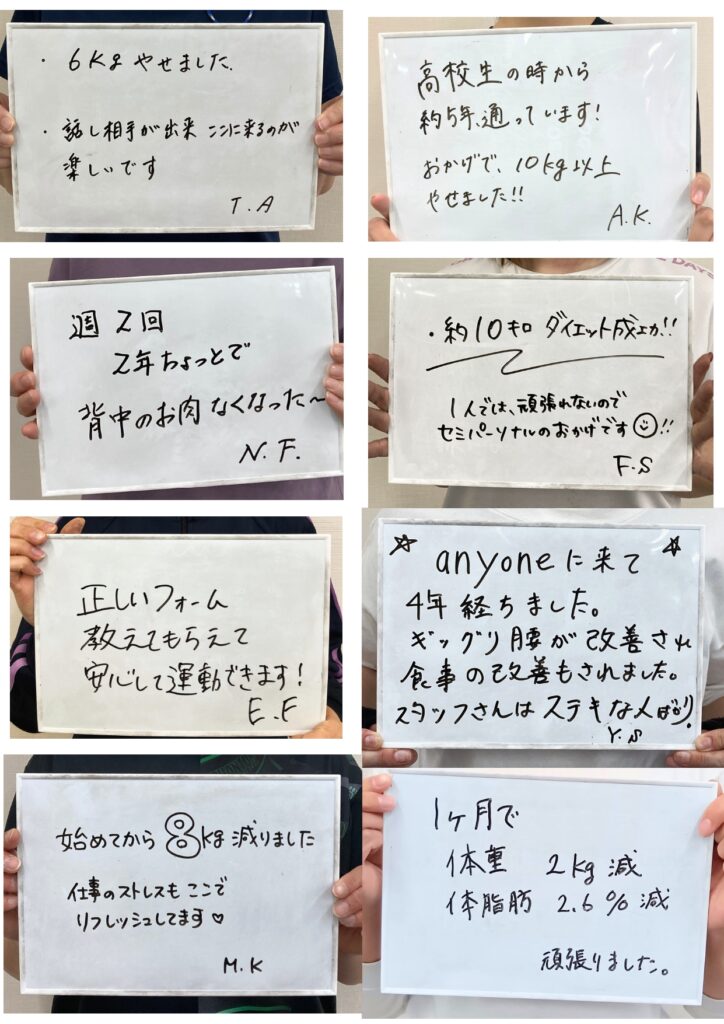 ・6Kgやせました.
・話し相手が出来 ここに来るのが
楽しいです
T.A
高校生の時から
約5年、通っています!
おかげで、10kg以上
やせました!!
A.K.
週2回
2年ちょっとで
背中のお肉なくなった〜
N.F.
・約10キロ ダイエット成功!!
1人では、頑張れないので
セミパーソナルのおかげです☺!!
F.S
正しいフォーム
教えてもらえて
安心して運動できます!
E.F
☆ anyoneに来て ☆
4年 経ちました。
ギックリ腰が改善され
食事の改善もされました。
スタッフさんはステキな人ばかり.
Y.S
始めてから 8kg 減りました
仕事のストレスも ここで
リフレッシュしてます♡
M.K
1ヶ月で
体重 2kg 減
体脂肪 2.6%減
頑張りました。